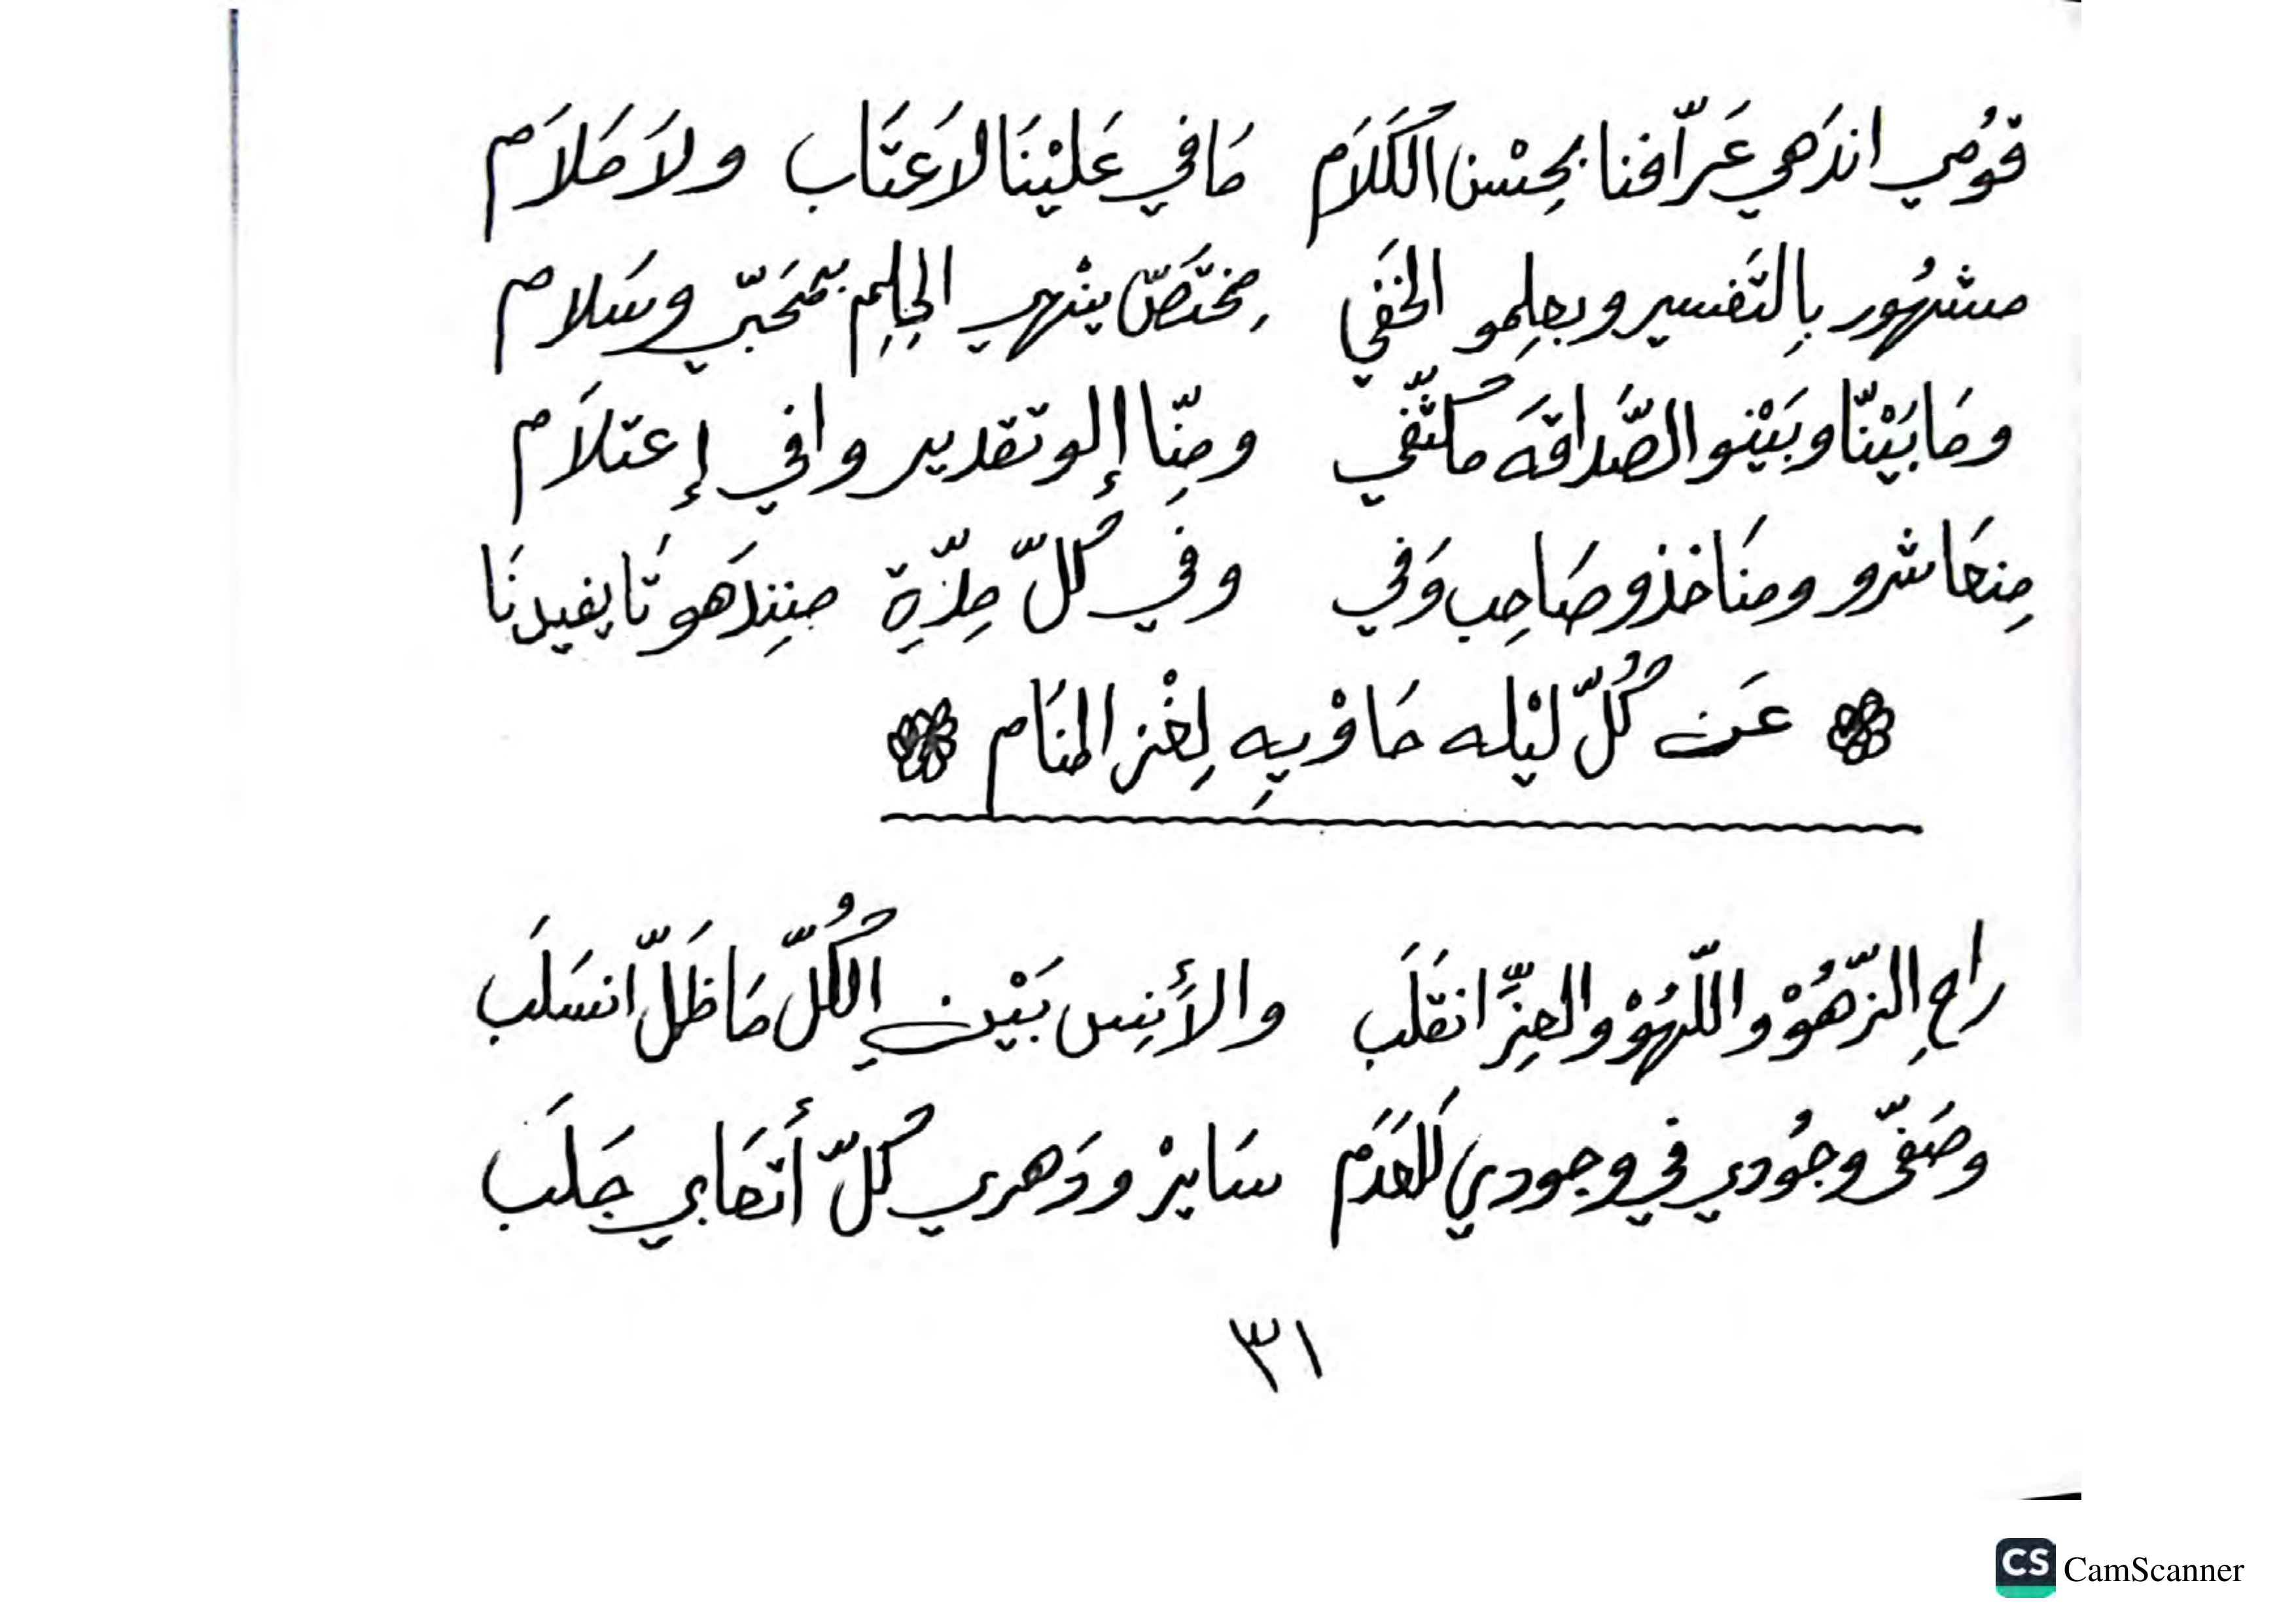 قوُمي اندَهي عَرّافنا بحِسْن الكَلَام مَافي عَليْنَا لاَعتَاب ولاَ مَلاَم
مشهُور بِالتَفسير وبعلِمو الخَفَي مِختَصّ ينْهي الحِلِم بمَحَبّي وسَلام
ومَا بَيْنّا وبَيْنو الصّدَاقَه مكَثّفي ومِنّا إلو تقدير وافي إعتلاَم
مِنعَاشرو ومنَاخذو صَاحِب وَفي وفي كلّ مِرّةِ منِندَهو تَا يفيدنَا
عَن كُلّ ليْله حَاوْيِه لِغْز المنَام
راحِ الزّهُوْ واللّهُوْ والعِزّ انقَلَب والأَنِس بَيْن الكُلّ مَا ظَلّ انسَلَب
وصَفّى وجُودي في وجودي للعَدَم سَايرْ ودَهري كلّ أَتعَابي جَلَب
٣١
CS CamScanner